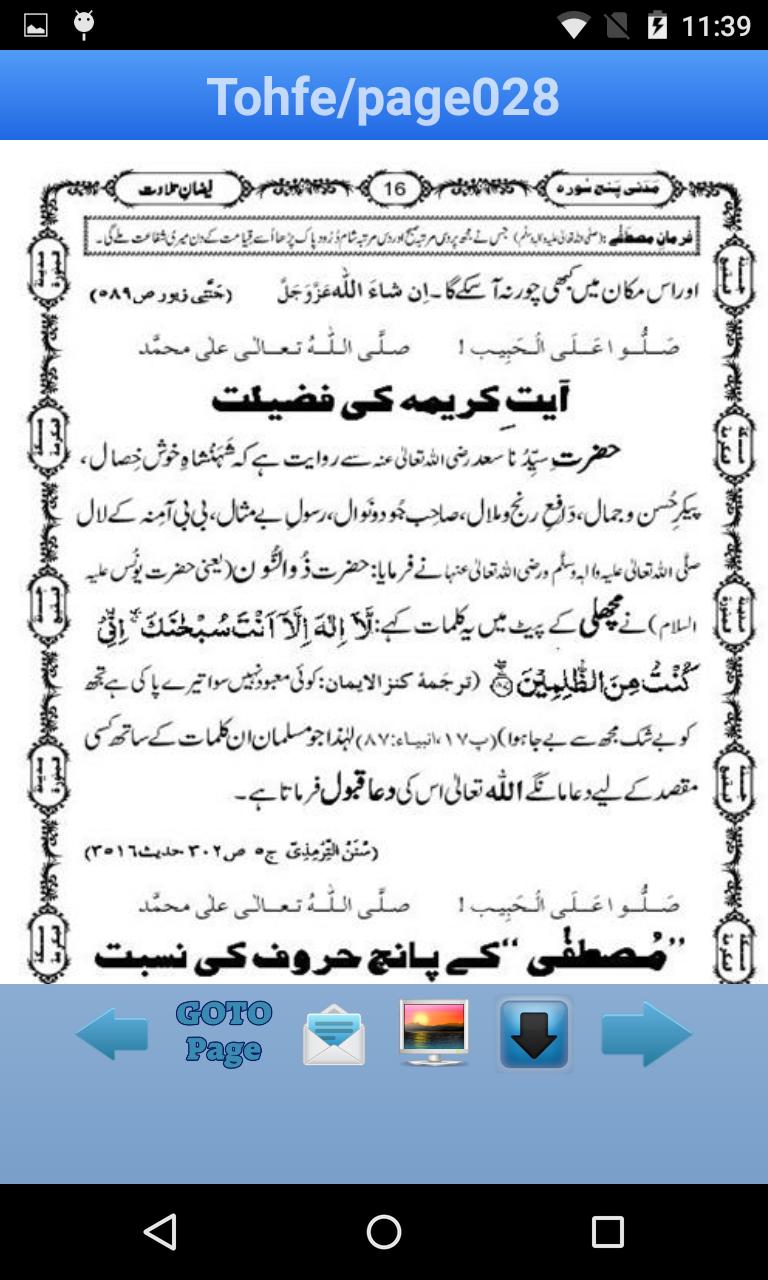 11:39
Tohfe/page028
مَدَنی پنج سُورہ
16
فیضانِ تلاوت
فرمانِ مصطفٰے :(صلی اللہ تعالیٰ علیہ والہ وسلم) جس نے مجھ پر دس مرتبہ صبح اور دس مرتبہ شام دُرُودِ پاک پڑھا اُسے قیامت کے دن میری شفاعت ملے گی۔
اور اس مکان میں کبھی چور نہ آ سکے گا۔ اِن شاءَ اللہ عَزَّوَجَلَّ (جَنَّتی زیور ص ۵۸۹)
صَلُّوا عَلَی الْحَبِیب ! صلَّی اللّٰہُ تعالٰی علٰی محمَّد
آیتِ کریمہ کی فضیلت
حضرتِ سیِّدُنا سعد رضی اللہ تعالیٰ عنہ سے روایت ہے کہ شَہَنْشاہِ خوش خِصال،
پیکرِ حُسن و جمال، دَافِعِ رنج و ملال، صاحِبِ جُود و نَوال، رسولِ بے مثال، بی بی آمِنہ کے لال
صلَّی اللہ تعالیٰ علیہ والہٖ وسلَّم ورضی اللہ تعالیٰ عنہا نے فرمایا: حضرت ذُوالنُّون (یعنی حضرت یونُس علیہ
السلام) نے مچھلی کے پیٹ میں یہ کلمات کہے: لَّاۤ اِلٰهَ اِلَّاۤ اَنْتَ سُبْحٰنَكَ ۖ اِنِّیْ
كُنْتُ مِنَ الظّٰلِمِیْنَ (ترجَمۂ کنز الایمان: کوئی معبود نہیں سوا تیرے پاکی ہے تجھ
کو بے شک مجھ سے بے جا ہوا) (پ ۱۷، انبیاء: ۸۷) لہٰذا جو مسلمان ان کلمات کے ساتھ کسی
مقصد کے لیے دعا مانگے اللہ تعالیٰ اس کی دعا قبول فرماتا ہے۔
(سُنَنُ التِّرْمِذِیّ ج۵ ص ۳۰۲ حدیث ۳۵۱۶)
صَلُّوا عَلَی الْحَبِیب ! صلَّی اللّٰہُ تعالٰی علٰی محمَّد
”مُصطفٰی“ کے پانچ حروف کی نسبت
GOTO
Page